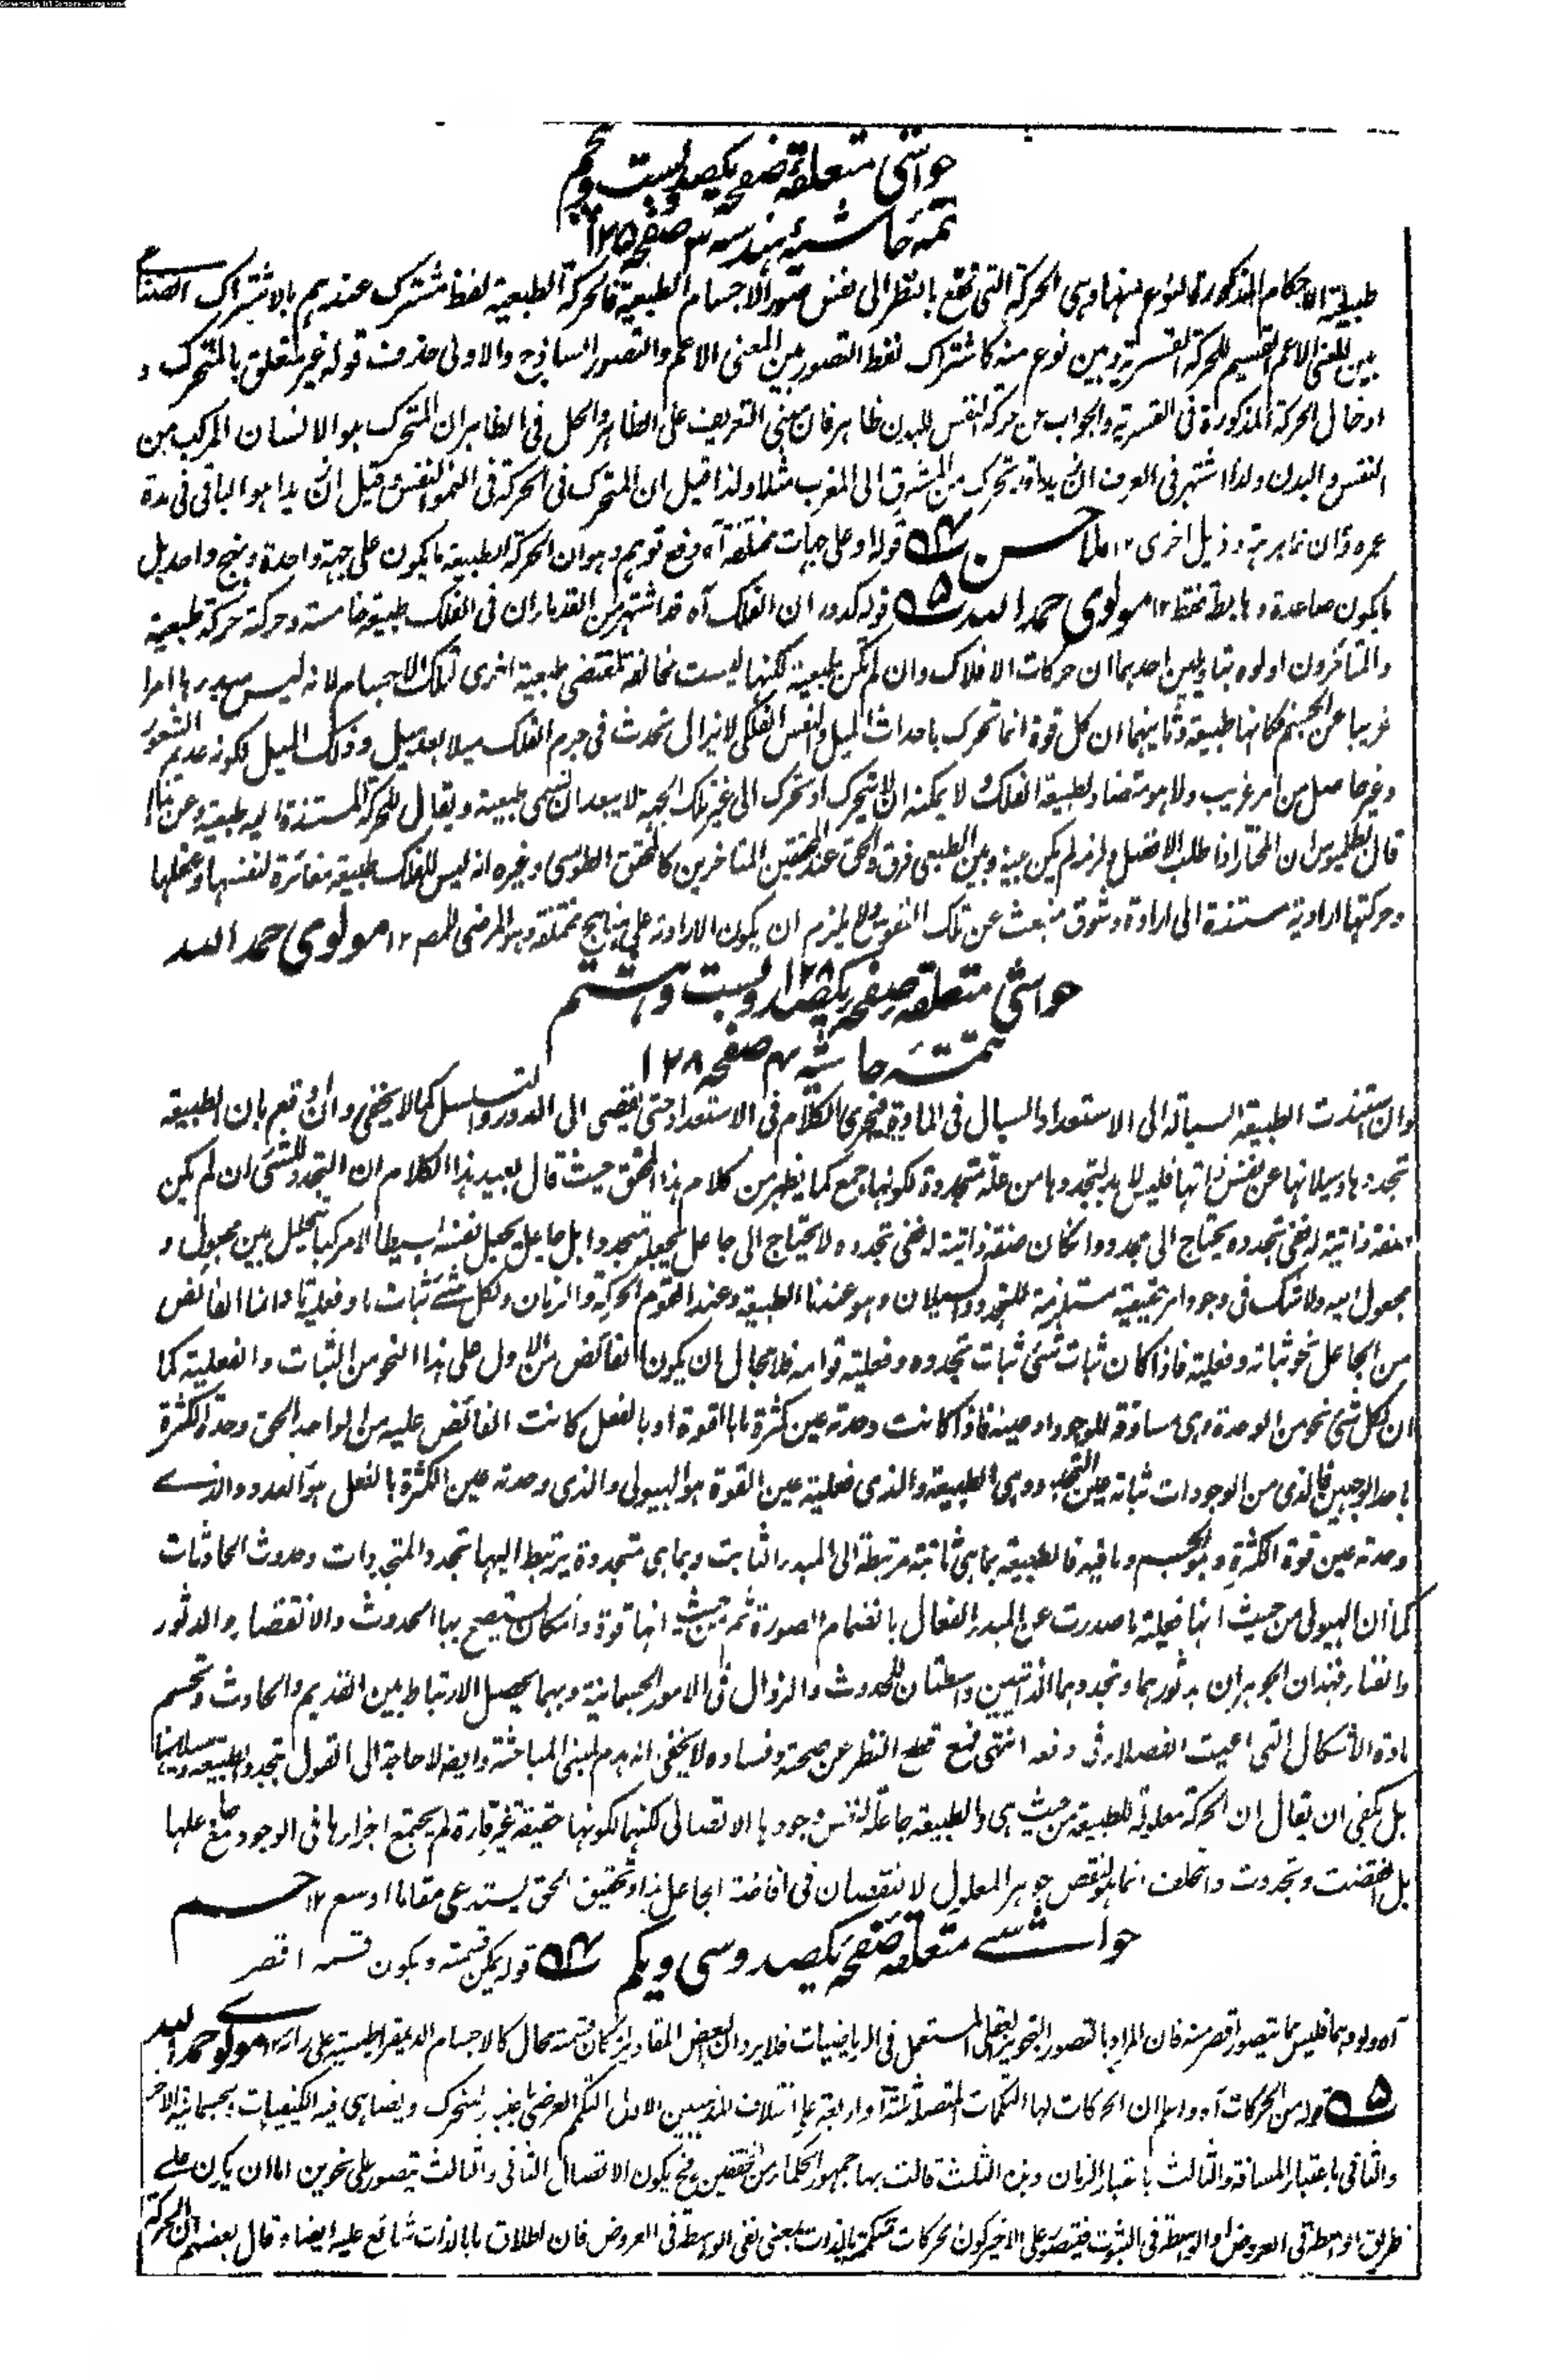 حواشی متعلقہ صفحہ یکصد و بست و پنجم
تتمہ حاشیہ ہندسہ ۳ صفحہ ۱۲۵
طبیعة الاجسام المذكورة لنوع منها وہی الحركة التی تقع بالنظر الی نفس صور الاجسام الطبیعیة فالحركة الطبیعیة لفظ مشترک عندہم بالاشتراک الصناعی
بین المعنی الاعم القسیم للحركة القسریة وبین نوع منہ كاشتراک لفظ التصور بین المعنی الاعم والتصور الساذج والاولی حذف قولہ غیر متعلق بالمتحرک و
ادخال الحركة المذكورة فی القسریة والجواب عن حركة النفس للبدن ظاہر فان مبنی التعریف علی الظاہر والحل فی الظاہر ان المتحرک ہو الانسان المركب من
النفس والبدن ولذا اشتہر فی العرف ان یتحرک من المشرق الی المغرب مثلا ولذا قیل ان المتحرک فی الحركة فی النمو النفس وقیل ان ہو الباقی فی مدة
عمرہ وذیل اخری ۱۲ ملا حسن ۴ قولہ او علی جہات مختلفة آہ دفع توہم وہو ان الحركة الطبیعیة ما یكون علی جہة واحدة ونہج واحد بل
ما یكون صاعدة وہابطة فقط ۱۲ مولوی حمد اللہ ۵ قولہ كدوران الفلک آہ قد اشتہر من القدماء ان فی الفلک طبیعة خامسة وحركتہ حركة طبیعیة
والمتأخرون اولوہ بتاویلین احدہما ان حركات الافلاک وان لم تكن طبیعیة لكنہا لیست مخالفة لمقتضی طبیعة اخری لتلک الاجسام لانہ لیس مبدءہا امرا
غریبا عن الجسم فكانہا طبیعة وثانیہما ان كل قوة انما تحرک باحداث المیل والنفس الفلكی لا یزال تحدث فی جرم الفلک میلا بعد میل وذلک المیل لكونہ عدیم الشعور
وغیر حاصل من امر غریب ولا ہو متضاد لطبیعة الفلک لا یمكنہ ان لا یتحرک او یتحرک الی غیر تلک الجہة لا یبعد ان یسمی طبیعیة ویقال للحركة المستندة الیہ طبیعیة وعن ہذا
قال بطلیموس ان المختار اذا طلب الافضل ولزمہ لم یكن بینہ وبین الطبیعی فرق والحق عند المحققین المتأخرین كالمحقق الطوسی وغیرہ انہ لیس للفلک طبیعة مغائرة لنفسہا وعقلہا
وحركتہا ارادیة مستندة الی ارادة وشوق منبعث عن تلک النفوس ولا یلزم ان یكون الارادة علی مناہج مختلفة وہو المرضی للمصـ ۱۲ مولوی حمد اللہ
حواشی متعلقہ صفحہ یكصد و بست و ہشتم ۱۲۸
تتمہ حاشیہ ۴ صفحہ ۱۲۸
وان استندت الطبیعة السیالة الی الاستعداد السیال فی المادة فیجری الكلام فی الاستعداد حتی یفضی الی الدور والتسلسل كما لا یخفی وان وقع بان الطبیعة
تجددہا وسیلانہا عن نفس ذاتہا فلیس لا بد لتجددہا من علة متجددة لكونہا كما یظہر من كلام ہذا المحقق حیث قال بعید ہذا الكلام ان التجدد للشئ ان لم یكن
صفة ذاتیة لہ ففی تجددہ یحتاج الی مجدد وان كان صفة ذاتیة لہ ففی تجددہ لا یحتاج الی جاعل یجعلہ متجددا بل جاعل یجعل نفسہ بسیطا لا مركبا یتخلل بین مجعول و
مجعول الیہ ولا شک فی وجود امر حقیقیة مستلزمة للتجدد والسیلان وہو عندنا الطبیعة وعند القوم الحركة والزمان ولكل شئ ثبات ما وفعلیة ما وانما الفائض
من الجاعل نحو ثباتہ وفعلیتہ فاذا كان ثبات شئ ثبات تجددہ وفعلیتہ قوامہ فلا محال ان یكون الفائض من الاول علی ہذا النحو من الثبات والفعلیة كما
ان لكل شئ نحو من الوحدة وہی مساوقة للوجود او عینہ فاذا كانت وحدتہ عین كثرة ما بالقوة او بالفعل كانت الفائض علیہ من الواحد الحق وحدة الكثرة
باحد الوجہین فالذی من الوجودات ثباتہ عین التجدد وہی الطبیعة والذی فعلیتہ عین القوة ہو الہیولی والذی وحدتہ عین الكثرة بالفعل ہو العدد والذی
وحدتہ عین قوة الكثرة ہو الجسم وما فیہ فالطبیعة بما ہی ثابتة مرتبطة الی المبدء الثابت وبما ہی متجددة یرتبط الیہا تجدد المتجددات وحدوث الحادثات
كما ان الہیولی من حیث انہا فعلیة ما صدرت عن المبدء الفعال بانضمام الصورة ثم من حیث انہا قوة وامكان یستصح بہا الحدوث والانقضاء والدثور
والفناء فہذان الجوہران بدثورہما وتجددہما الذاتیین واسطتان للحدوث والزوال فی الامور الجسمانیة وبہما یحصل الارتباط بین القدیم والحادث وتحسم
مادة الاشكال التی اعیت الفضلاء فی دفعہ انتہی فمع قطع النظر عن صحتہ وفسادہ لا یخفی انہ ہدم لمبنی المباحثة وایضا لا حاجة الی القول بتجدد الطبیعة وسیلانہا
بل یكفی ان یقال ان الحركة معلولة للطبیعة من حیث ہی والطبیعة جاعلة لنفس وجودہا الاتصالی لكنہا لكونہا حقیقة غیر قارة لم یجتمع اجزاءہا فی الوجود مع علتہا
بل انقضت وتجددت والتخلف انما ہو لنقص جوہر المعلول لا لنقصان فی افاضة الجاعل ہذا وتحقیق الحق یستدعی مقاما اوسع ۱۲
حواشی متعلقہ صفحہ یكصد و سی و یكم ۴ قولہ یمكن قسمتہ ویكون قسمہ اقصر
آہ ولو وہما فلیس مما یتصور اقصر منہ فان المراد بالتصور التجویز العقلی المستعمل فی الریاضیات فلا یرد ان لبعض المقادیر امكان قسمتہ محال كالاجسام الدیمقراطیسیة علی رایہ ۱۲ مولوی حمد اللہ
۵ قولہ من الحركات آہ واعلم ان الحركات لہا التكممات المتصلة ثلثة او اربعة علی اختلاف المذہبین الاول التكمم العرضی باعتبار المتحرک ویضاہی فیہ الكیفیات الجسمانیة
والثانی باعتبار المسافة والثالث باعتبار الزمان وہذہ الثلثة قالت بہا جمہور الحكماء من المحققین فح یكون الاتصال الثانی والثالث یتصور علی نحوین اما ان یكون علی
طریق الواسطة فی العروض او الواسطة فی الثبوت فیتصور علی الاخیر كون الحركات متكممة بالذات بمعنی نفی الواسطة فی العروض فان اطلاق ما بالذات شائع علیہ ایضا وقال بعضہم ان الحركة